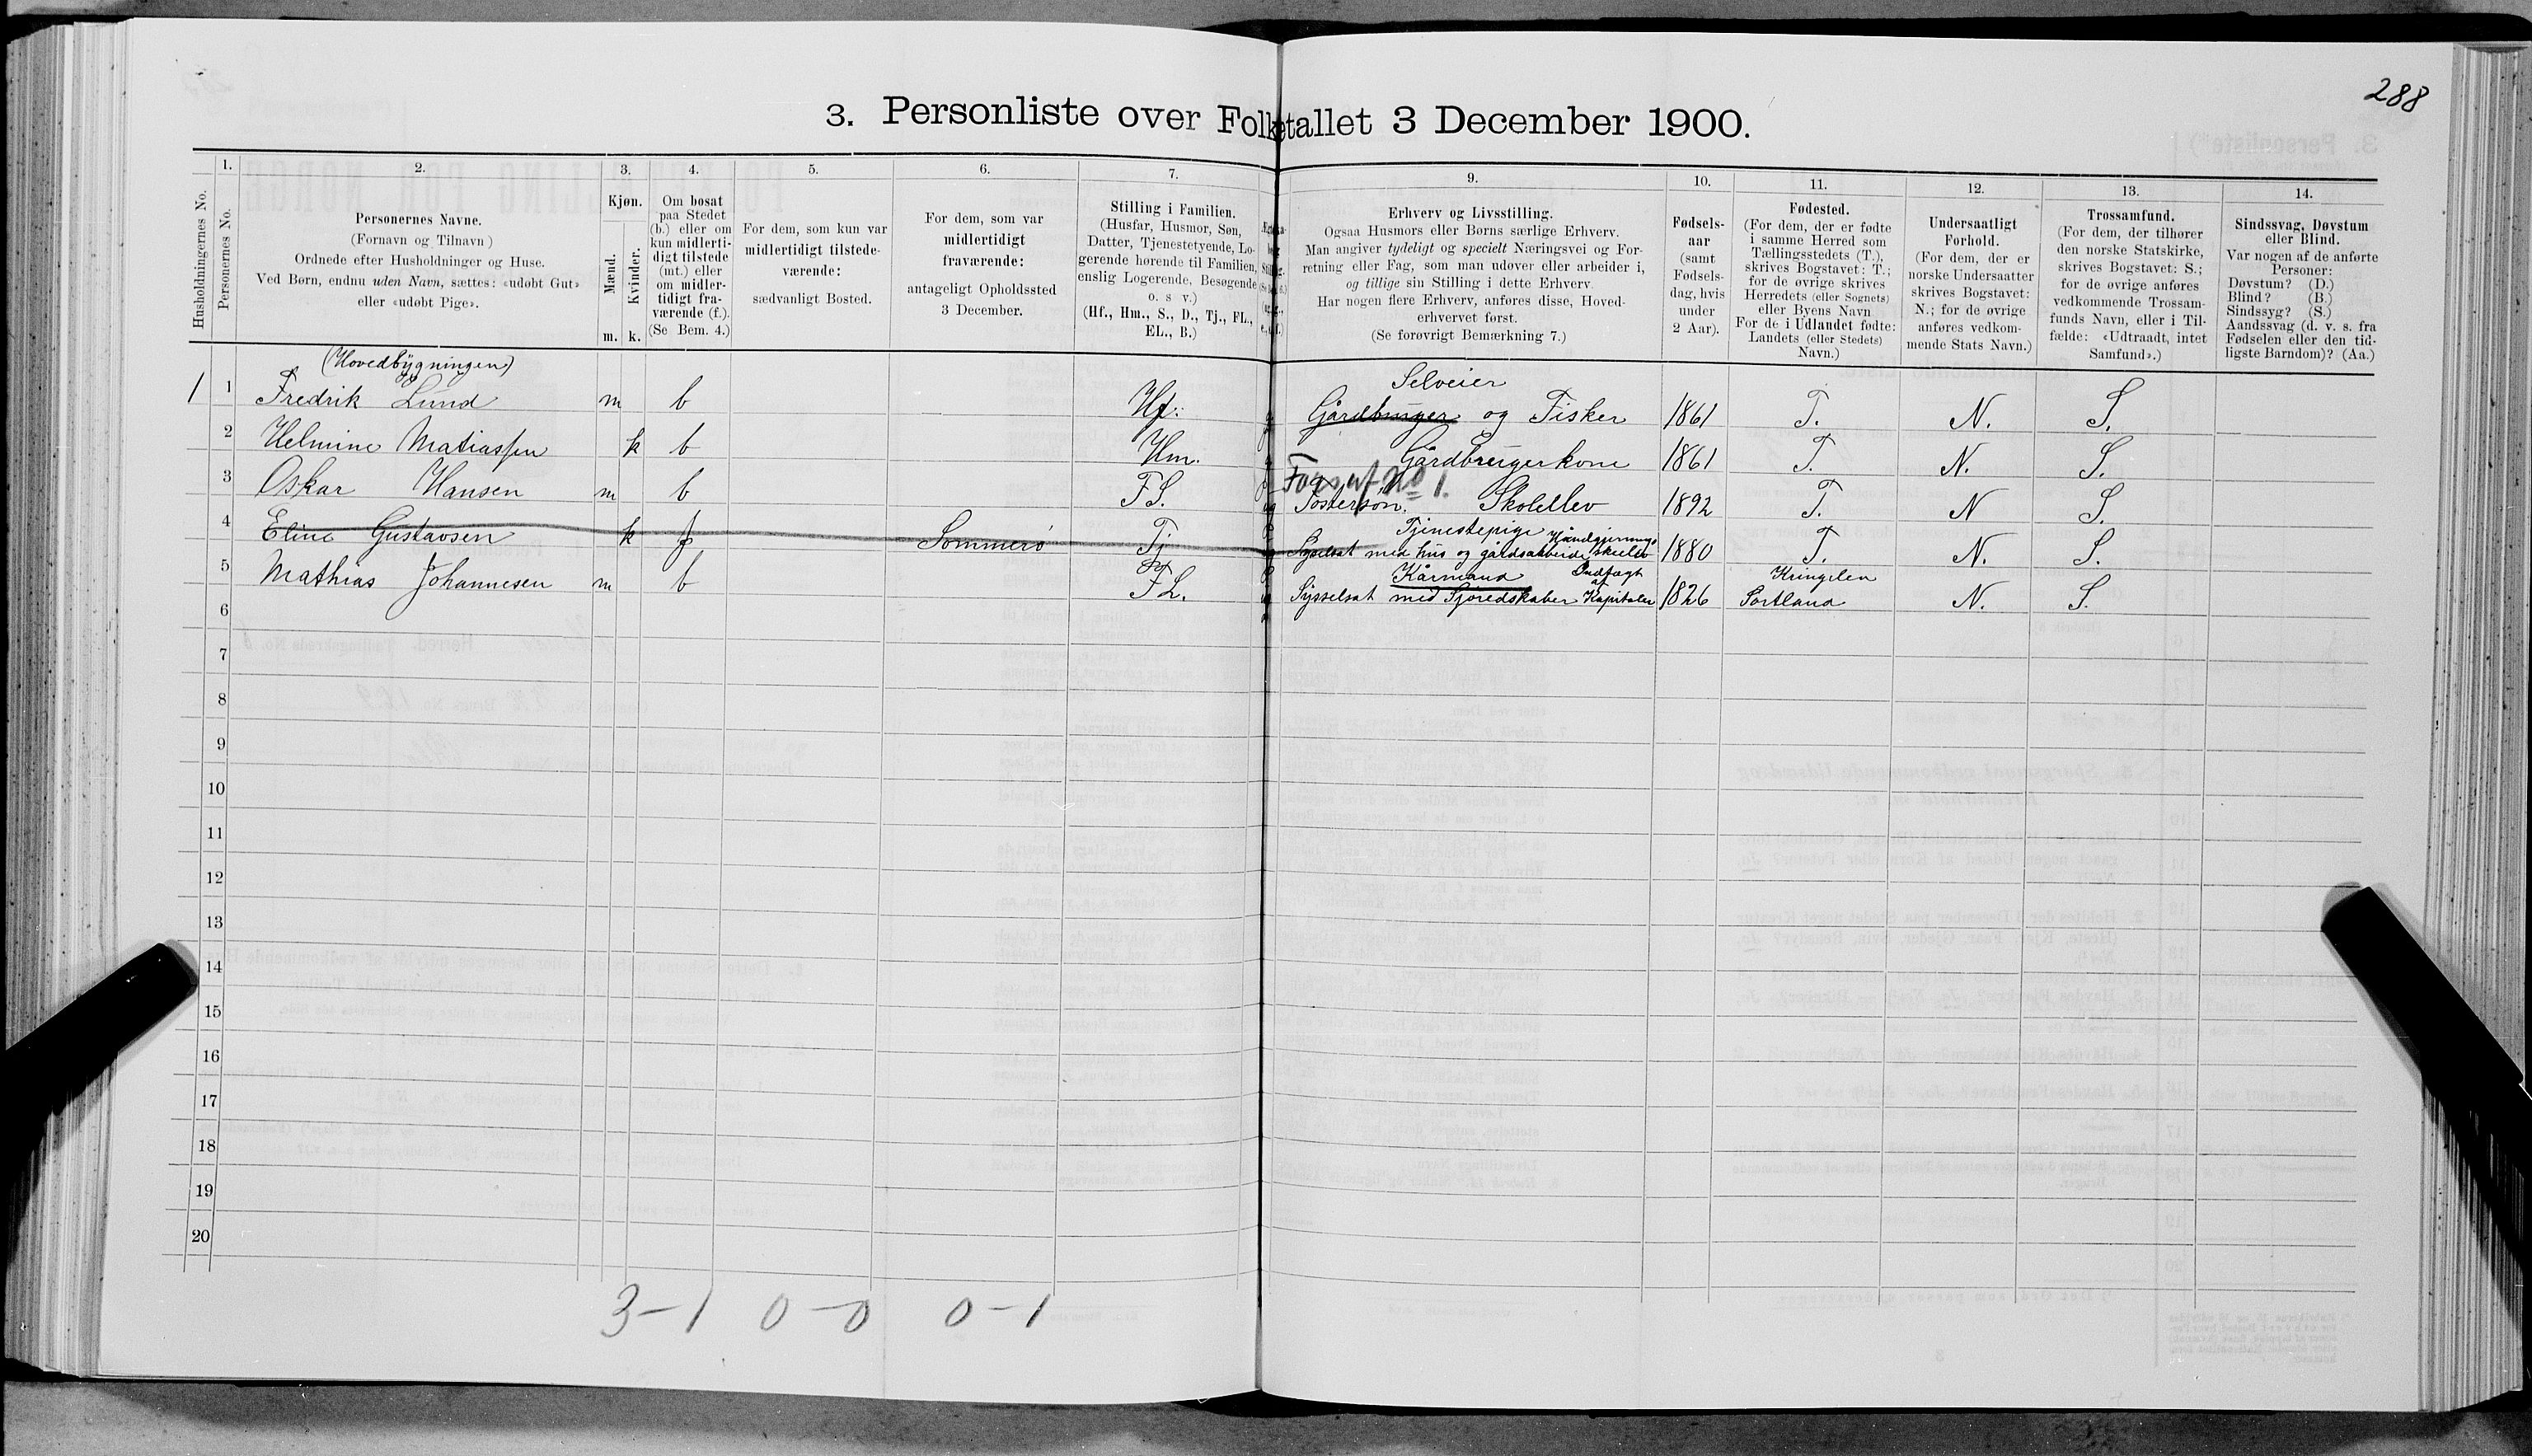 288
3. Personliste over Folketallet 3 December 1900.
1. 2. 3. 4. 5. 6. 7. 9. 10. 11. 12. 13. 14.
Husholdningernes No.
Personernes No.
Personernes Navne.
(Fornavn og Tilnavn)
Ordnede efter Husholdninger og Huse.
Ved Børn, endnu uden Navn, sættes: «udøbt Gut»
eller «udøbt Pige».
Kjøn.
Mænd.
Kvinder.
m. k.
Om bosat
paa Stedet
(b.) eller om
kun midlerti-
digt tilstede
(mt.) eller
om midler-
tidigt fra-
værende (f.).
(Se Bem. 4.)
For dem, som kun var
midlertidigt tilstede-
værende:
sædvanligt Bosted.
For dem, som var
midlertidigt
fraværende:
antageligt Opholdssted
3 December.
Stilling i Familien.
(Husfar, Husmor, Søn,
Datter, Tjenestetyende, Lo-
gerende hørende til Familien,
enslig Logerende, Besøgende
o. s v.)
(Hf., Hm., S., D., Tj., FL.,
EL., B.)
Erhverv og Livsstilling.
Ogsaa Husmors eller Børns særlige Erhverv.
Man angiver tydeligt og specielt Næringsvei og For-
retning eller Fag, som man udøver eller arbeider i,
og tillige sin Stilling i dette Erhverv
Har nogen flere Erhverv, anføres disse, Hoved-
erhvervet først.
(Se forøvrigt Bemærkning 7.)
Fødsels-
aar
(samt
Fødsels-
dag, hvis
under
2 Aar).
Fødested.
(For dem, der er fødte
i samme Herred som
Tællingsstedets (T.),
skrives Bogstavet: T.;
for de øvrige skrives
Herredets (eller Sognets)
eller Byens Navn
For de i Udlandet fødte:
Landets (eller Stedets)
Navn.)
Undersaatligt
Forhold.
(For dem, der er
norske Undersaatter
skrives Bogstavet:
N.; for de øvrige
anføres vedkom-
mende Stats Navn.)
Trossamfund.
(For dem, der tilhører
den norske Statskirke,
skrives Bogstavet: S.;
for de øvrige anføres
vedkommende Trossam-
funds Navn, eller i Til-
fælde: «Udtraadt, intet
Samfund».)
Sindssvag, Døvstum
eller Blind.
Var nogen af de anførte
Personer:
Døvstum? (D.)
Blind? (B.)
Sindssyg? (S.)
Aandssvag (d. v. s. fra
Fødselen eller den tid-
ligste Barndom)? (Aa.)
(Hovedbygningen)
Selveier
1 1 Fredrik Lund m b Hf. Gårdbruger og Fisker 1861 T. N. S.
2 Helmine Matiassen k b Hm. Gårdbrugerkone 1861 T. N. S.
Fors. af No 1.
3 Oskar Hansen m b F S. Fostersøn. Skoleelev 1892 T. N S.
Tjenestepige Håndgjernings
4 Eline Gustavsen k f Sommerø Tj Sysselsat med hus og gårdsarbeide skoleelev 1880 T. N. S.
Kårmand Indtægt Kringelen
af
5 Mathias Johannesen m b F L. Sysselsat med Sjøredskaber Kapitaler 1826 Sortland N. S.
6
7
8
9
10
11
12
13
14
15
16
17
18
19
20
3-1 0-0 0-1